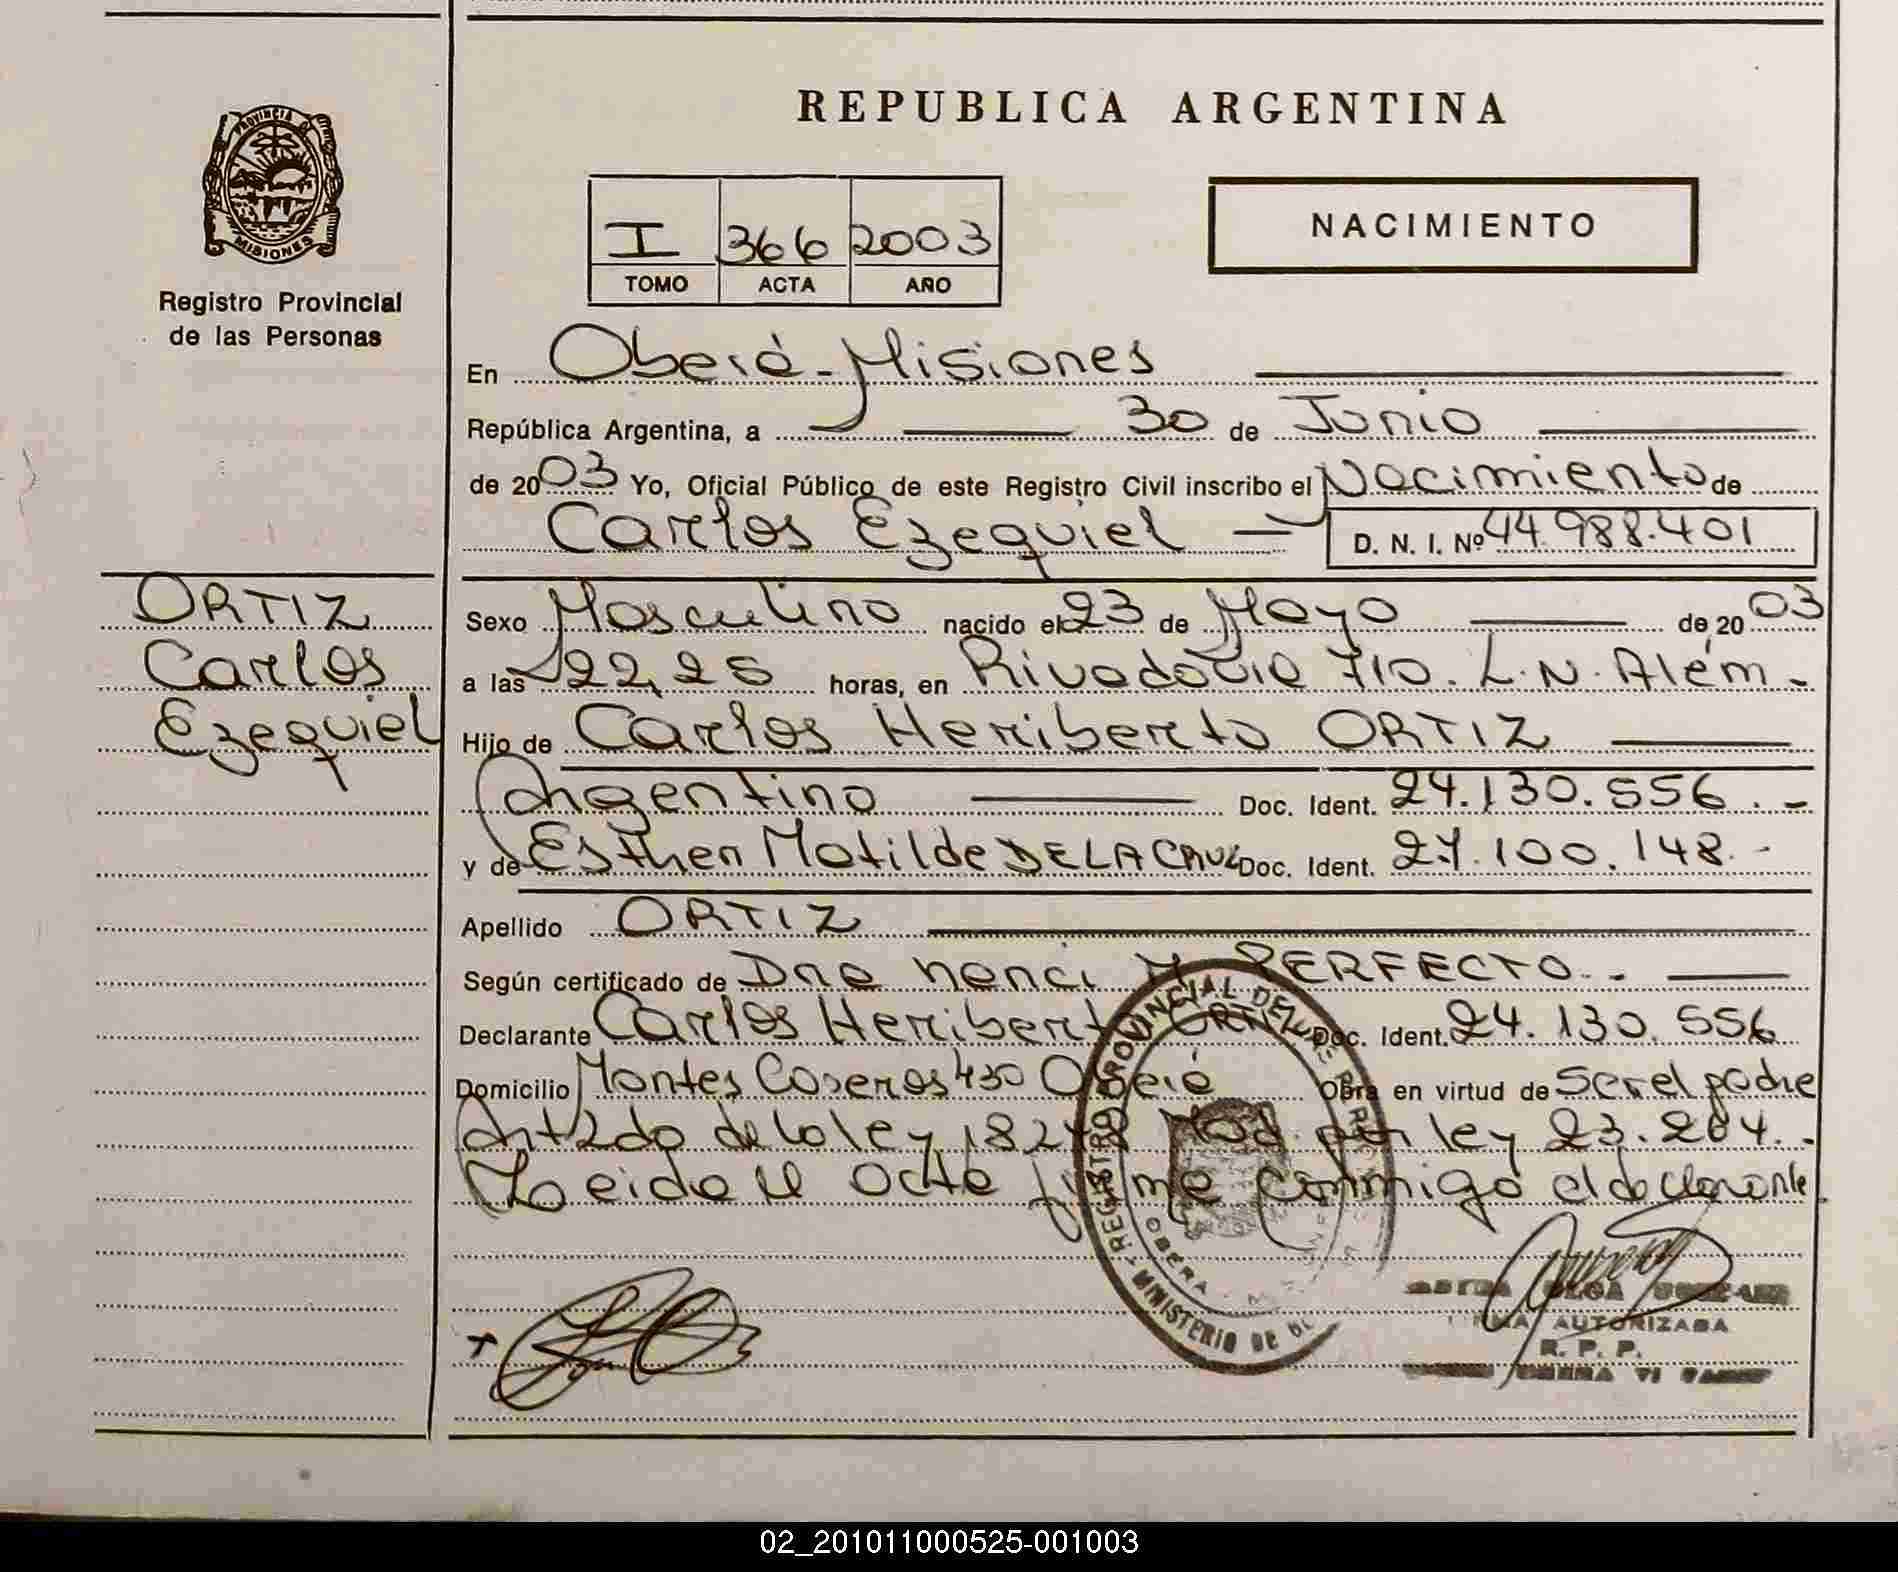 REPUBLICA ARGENTINA
PROVINCIA DE
MISIONES
Registro Provincial
de las Personas
I 366 2003
TOMO ACTA AÑO
NACIMIENTO
En Oberá - Misiones
República Argentina, a 30 de Junio
de 2003 Yo, Oficial Público de este Registro Civil inscribo el Nacimiento de
Carlos Ezequiel — D. N. I. Nº 44.988.401
ORTIZ
Carlos
Ezequiel
Sexo Masculino nacido el 23 de Mayo de 2003
a las 22,25 horas, en Rivadavia 710. L.N. Alem -
Hijo de Carlos Heriberto ORTIZ
Argentino Doc. Ident. 24.130.556. -
y de Esther Matilde DE LA CRUZ Doc. Ident. 27.100.148. -
Apellido ORTIZ
Según certificado de Dra Nanci M PERFECTO. -
Declarante Carlos Heriberto ORTIZ Doc. Ident. 24.130.556
Domicilio Montes Caseros 430 Oberá Obra en virtud de ser el padre
Art 2do de la ley 18248 Mod. por ley 23.264. -
Leida el acta firma conmigo el declarante
REGISTRO PROVINCIAL DE LAS PERSONAS
OBERA
MINISTERIO DE
OLGA
FIRMA AUTORIZADA
R. P. P.
OBERA
02_201011000525-001003